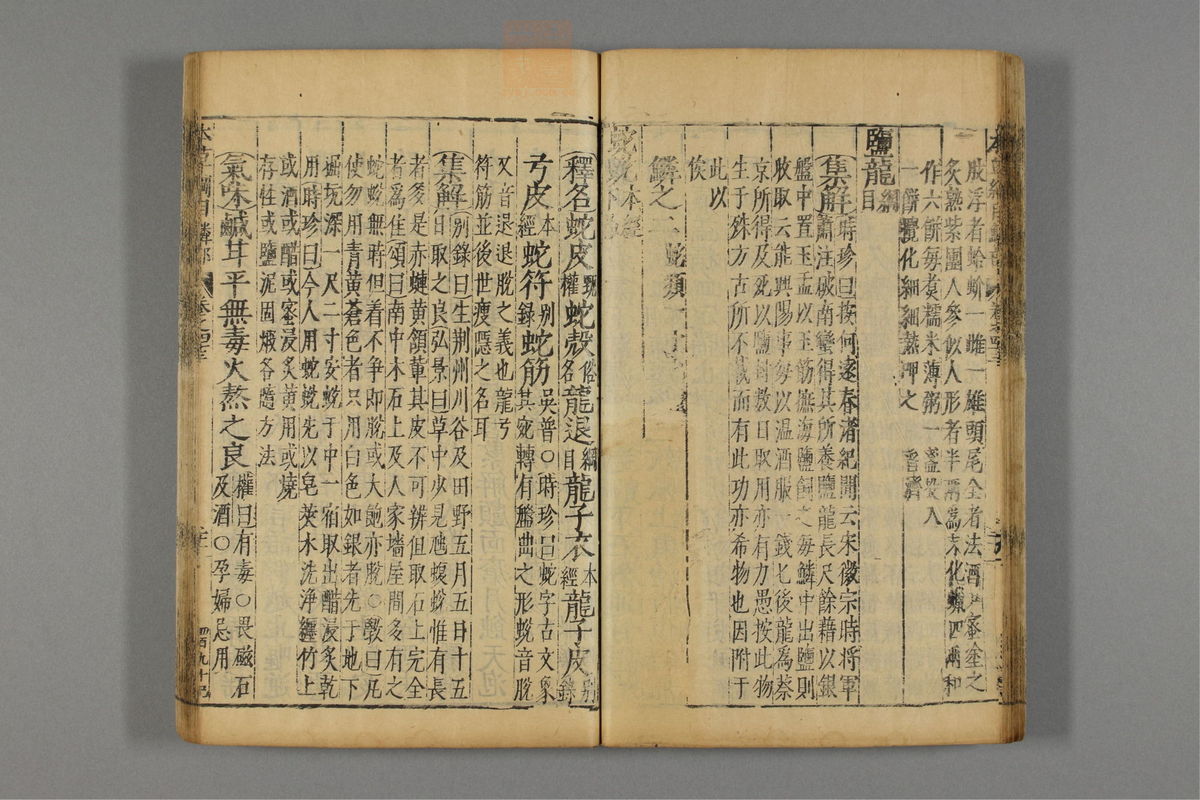 肢浮者蛤蚧一雌一雄頭尾全者法酒和蜜塗之
炙熟紫團人參似人形者半兩爲末化蠟四兩和
作六餅每煮糯米薄粥一盞投入
一餅攪化細細熱呷之 普濟
鹽龍綱目
集解時珍曰按何薳春渚紀聞云宋徽宗時將軍
蕭注破南蠻得其所養鹽龍長尺餘藉以銀
盤中置玉盂以玉筯撫海鹽飼之每鱗中出鹽則
收取云能興陽事每以温酒服一錢匕後龍爲蔡
京所得及死以鹽封數日取用亦有力愚按此物
生于殊方古所不載而有此功亦希物也因附于
此以
俟
鱗之二 蛇類一十
蛇蛻本經
釋名蛇皮甄權蛇殻俗名龍退綱目龍子衣本經龍子皮别錄
弓皮本經蛇符别錄蛇筋吳普○時珍曰蛇字古文象
其宛轉有盤曲之形蛻音脫
又音退退脫之義也龍弓
符筋並後世瘦隱之名耳
集解别錄曰生荆州川谷及田野五月五日十五
日取之良弘景曰草中少見虺蝮蛻惟有長
者多是赤蝀黄頷輩其皮不可辨但取石上完全
者爲佳頌曰南中木石上及人家墻屋間多有之
蛇蛻無時但着不争即脫或大飽亦脫○斆曰凡
使勿用青黄蒼色者只用白色如銀者先于地下
掘坑深一尺二寸安蛻于中一宿取出醋浸炙乾
用時珍曰今人用蛇蛻先以皂莢水洗淨纏竹上
或酒或醋或蜜浸炙黄用或燒
存性或鹽泥固煅各隨方法
氣味鹹甘平無毒火熬之良權曰有毒○畏磁石
及酒○孕婦忌用